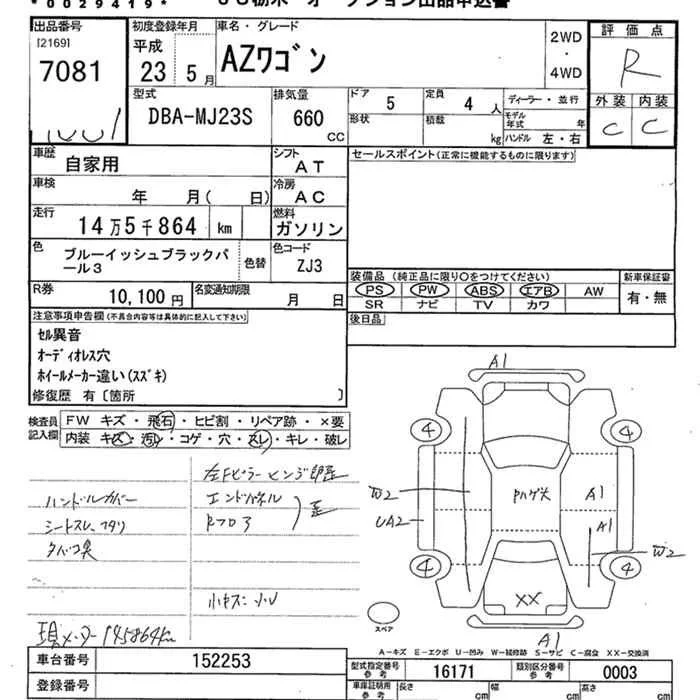 *0029419*
出品番号
[2169]
7081
初度登録年月
平成
23 5月
車名・グレード
AZワゴン
2WD
・
4WD
評価点
R
外装 内装
C C
型式
DBA-MJ23S
排気量
660 CC
ドア 5
定員 4 人
形状
積載 kg
ディーラー・並行
モデル年式 年
ハンドル 左・右
車歴
自家用
シフト
AT
セールスポイント(正常に機能するものに限ります)
車検
年 月( 日)
冷房
AC
走行
14万5千864 km
燃料
ガソリン
色
ブルーイッシュブラックパール3
色替
色コード
ZJ3
装備品 (純正品に限り○をつけてください)
PS PW ABS エアB AW
SR ナビ TV カワ
新車保証書
有・無
R券
10,100円
名変通知期限
月 日
後日品
注意事項申告欄(不具合内容等は具体的に記入して下さい)
セル異音
オーディオレス穴
ホイールメーカー違い(スズキ)
修復歴 有〔箇所 〕
検査員記入欄
FW キズ・飛石・ヒビ割・リペア跡・×要
内装 キズ・汚レ・コゲ・穴・スレ・キレ・破レ
ハンドルカバー
シートスレ、フタリ
タバコ臭
左Fピラーヒンジ部歪
エンドパネル
Rフロア
歪
小キズ
現メーター145864km
A1
4 4
W2
UA2
A1
A1
W2
4 4
XX
A1
スペア
A-キズ E-エクボ U-凹み W-補修跡 S-サビ C-腐食 XX-交換済
車台番号
152253
登録番号
型式指定番号
参考
16171
類別区分番号
参考
0003
車庫証明用
参考
長さ cm
幅 cm
高さ cm